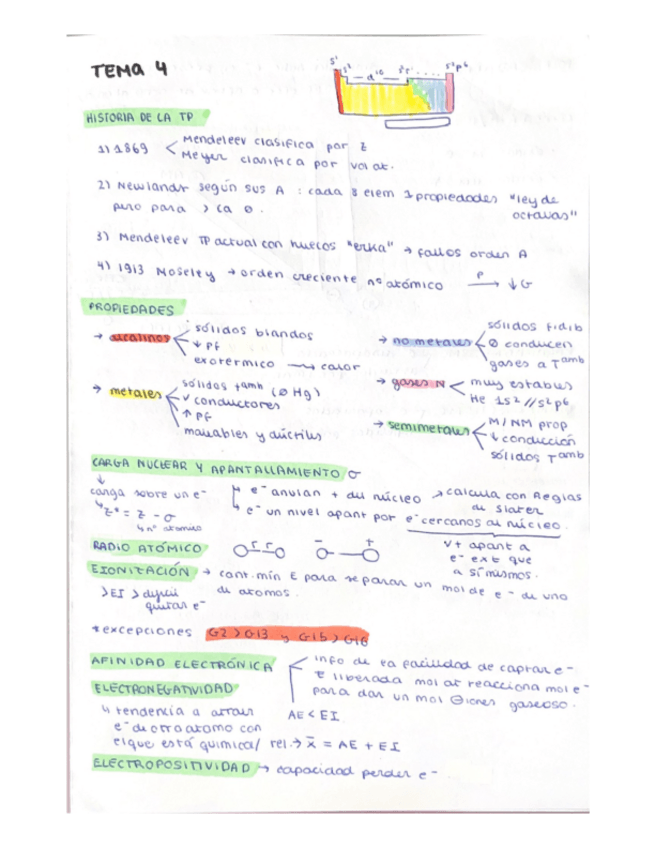 TEMA 4
s¹
s²
d¹⁰
s²p⁶
HISTORIA DE LA TP
1) 1869 < Mendeleev clasifica por Z
Meyer clasifica por vol at.
2) Newlands según sus A : cada 8 elem 1 propiedades "ley de
pero para > ca ø. octavas"
3) Mendeleev TP actual con huecos "erka" → fallos orden A
4) 1913 Moseley → orden creciente nº atómico P → ↓ G
PROPIEDADES
→ alcalinos < sólidos blandos
↓ PF
exotérmico → calor
→ metales < sólidos tamb (ø Hg)
✓ conductores
↑ PF
maleables y dúctiles
→ no metales < sólidos
ø conducen
gases a Tamb
→ gases N < muy estables
He 1s² // s²p⁶
→ semimetales < M/NM prop
↓ conducción
sólidos Tamb
CARGA NUCLEAR Y APANTALLAMIENTO σ
↓
carga sobre un e⁻
↳ Z* = Z - σ
↳ nº atómico
↦ e⁻ anulan + del núcleo → calcula con Reglas
de Slater
↳ e⁻ un nivel apant por e⁻ cercanos al núcleo.
apant a
e⁻ ext que
a sí mismos.
RADIO ATÓMICO r r - +
EIONITACIÓN → cant. mín E para separar un mol de e⁻ de uno
de atomos.
>EI > difícil
quitar e⁻
*excepciones G2 > G13 y G15 > G16
AFINIDAD ELECTRÓNICA < info de la facilidad de captar e⁻
E liberada mol at reacciona mol e⁻
para dar un mol ⊖iones gaseoso.
AE < EI
ELECTRONEGATIVIDAD
↳ tendencia a atraer
e⁻ de otro atomo con
el que está quimica/ rel. → x̄ = AE + EI
ELECTROPOSITIVIDAD → capacidad perder e⁻